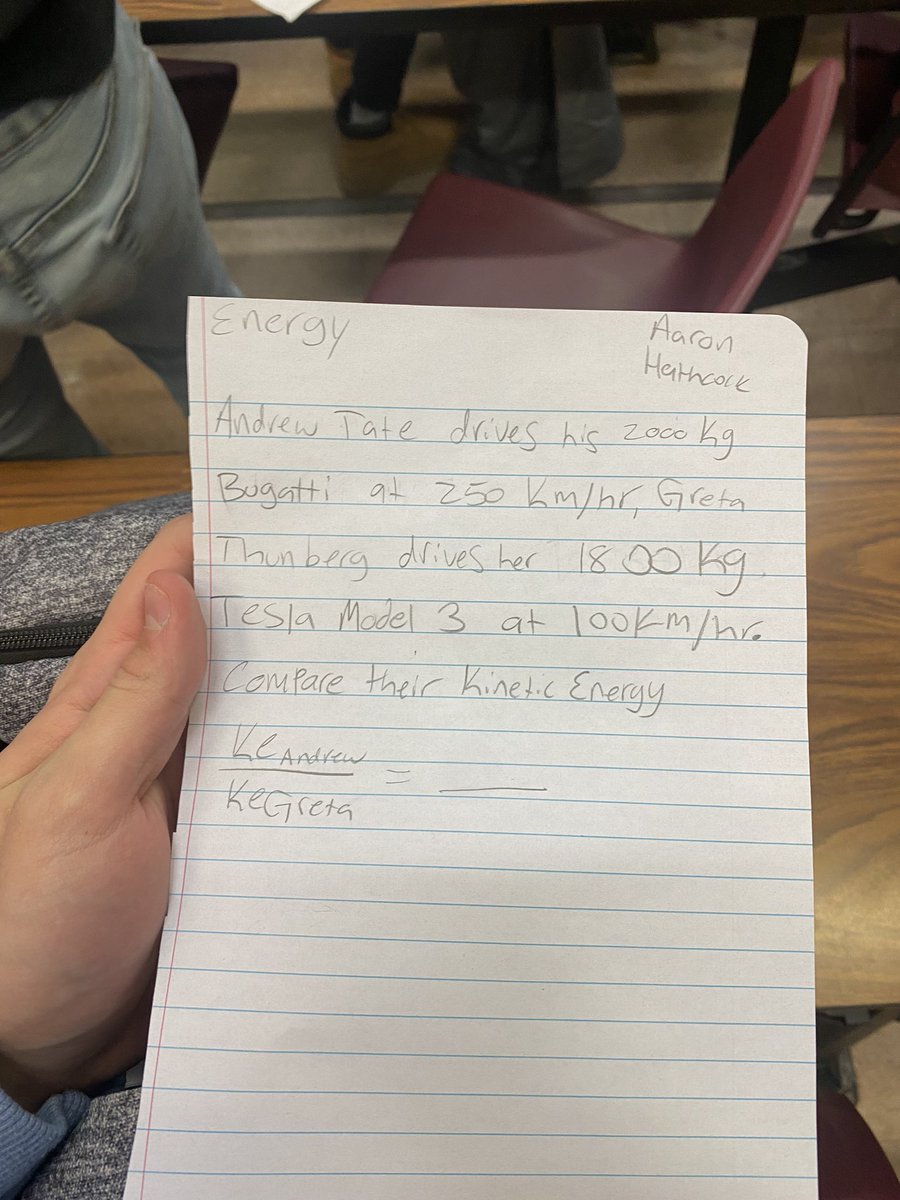 Energy
Aaron
Hathcock
Andrew Tate drives his 2000 Kg
Bugatti at 250 Km/hr, Greta
Thunberg drives her 1800 Kg
Tesla Model 3 at 100Km/hr.
Compare their Kinetic Energy
Ke Andrew
Ke Greta
=